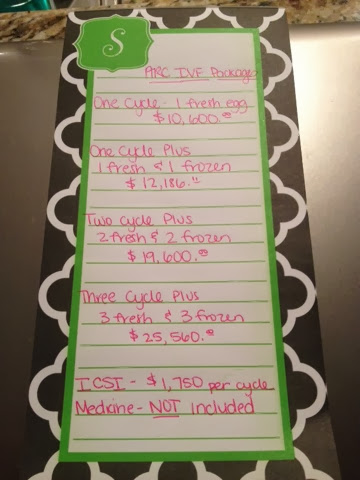 S
ARC IVF Packages
One Cycle - 1 fresh egg
$10,600.00
One Cycle Plus
1 fresh & 1 frozen
$12,186.00
Two Cycle Plus
2 fresh & 2 frozen
$19,600.00
Three Cycle Plus
3 fresh & 3 frozen
$25,560.00
ICSI - $1,750 per cycle
Medicine - NOT included